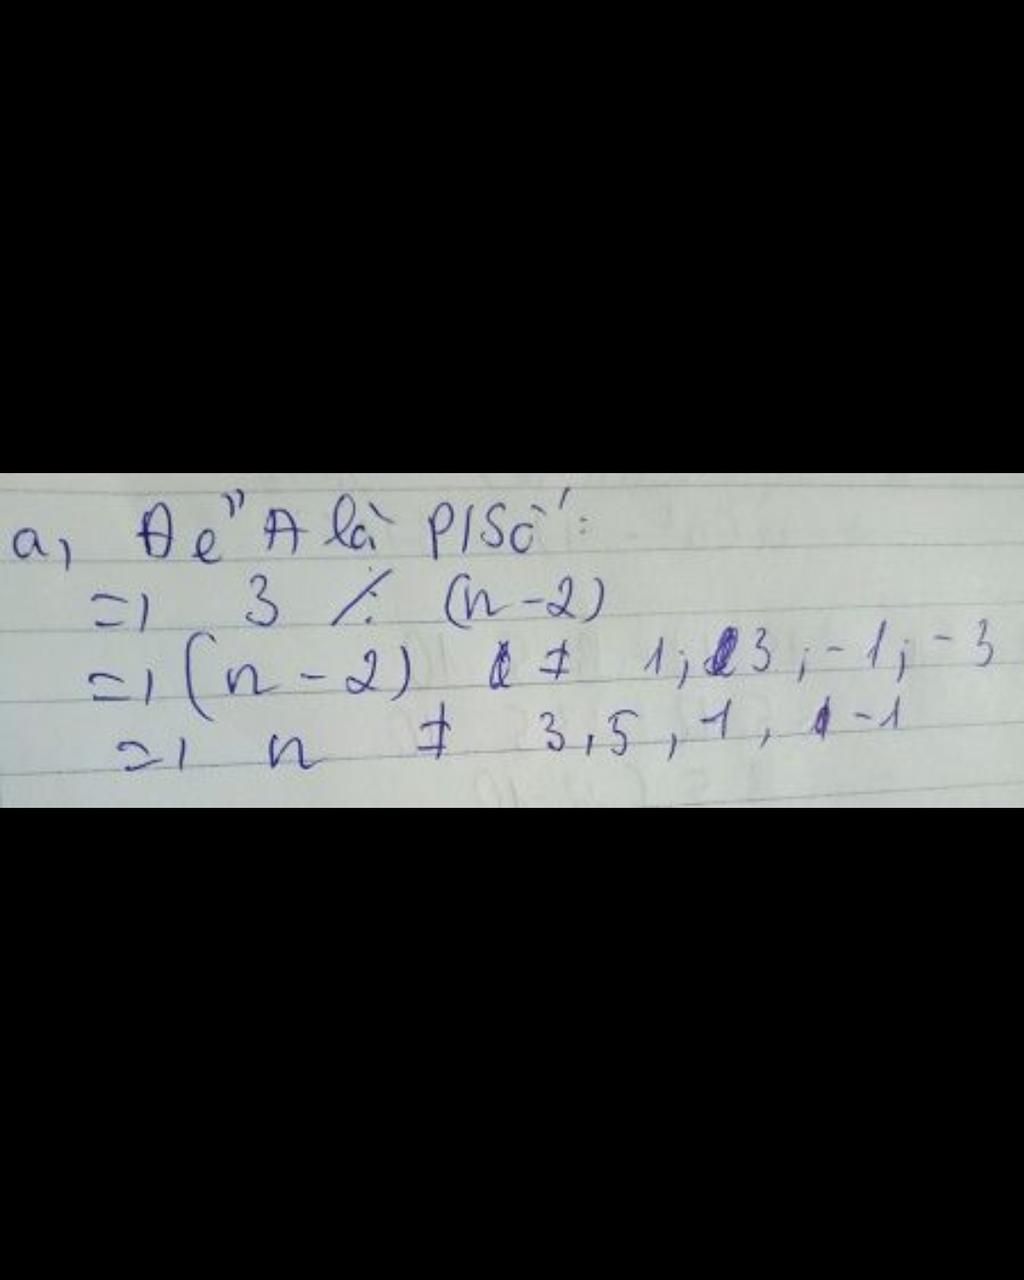 a, Để A là P/Số:
=> 3 ⋮̸ (n-2)
=> (n-2) ≠ 1; 3; -1; -3
=> n ≠ 3, 5, 1, -1